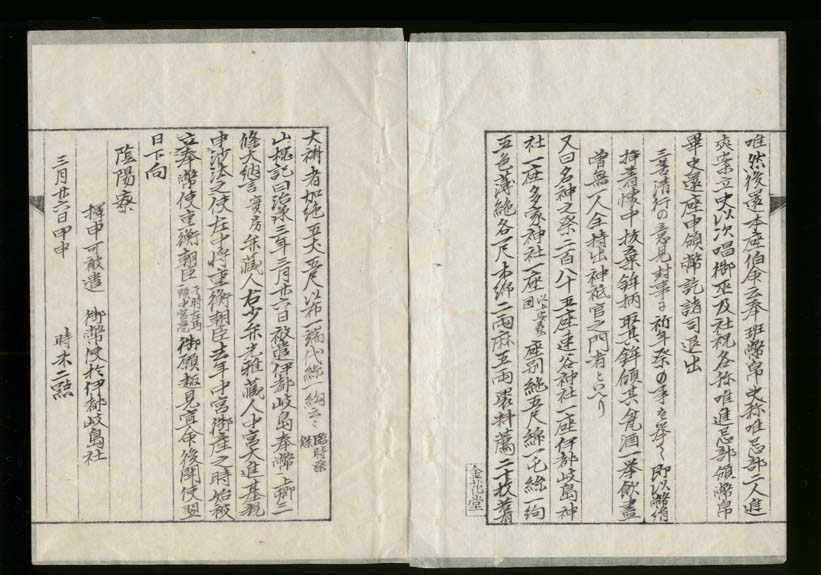 唯然後還本座伯命云奉班幣帛史称唯忌部二人進
夾案立史以次唱御巫及社祝各称唯進忌部頒幣帛
畢史還座申頒幣訖諸司退出
三善清行の意見封事に祈年祭の事を挙て即以幣絹
挿着懐中抜棄鉾柄取其鉾傾其瓮酒一挙飲盡
曽無一人全持出神祇官之門者といへり
又曰名神之祭二百八十五座速谷神社一座伊都岐島神
社一座多家神社一座 以上安芸国 座別絁五尺絲一屯絲一絇
五色薄絁各一尺木綿二両麻五両裹料薦二十枚若有
大祷者加絁五丈五尺以布一端代絲一絇云々 臨時祭
山槐記曰治承三年三月廿六日被遣伊都岐島奉幣 上卿三
條大納言実房弁蔵人右少弁光雅蔵人中宮大進基親
申沙汰之使左中将重衡朝臣去年中宮御産之時始被
立奉幣使重衡朝臣 于時左馬頭中宮亮 御願趣見宣命後聞使翌
日下向
陰陽寮
択申可被遣 御幣使於伊都岐島社
三月廿六日甲申 時未二點
金花堂